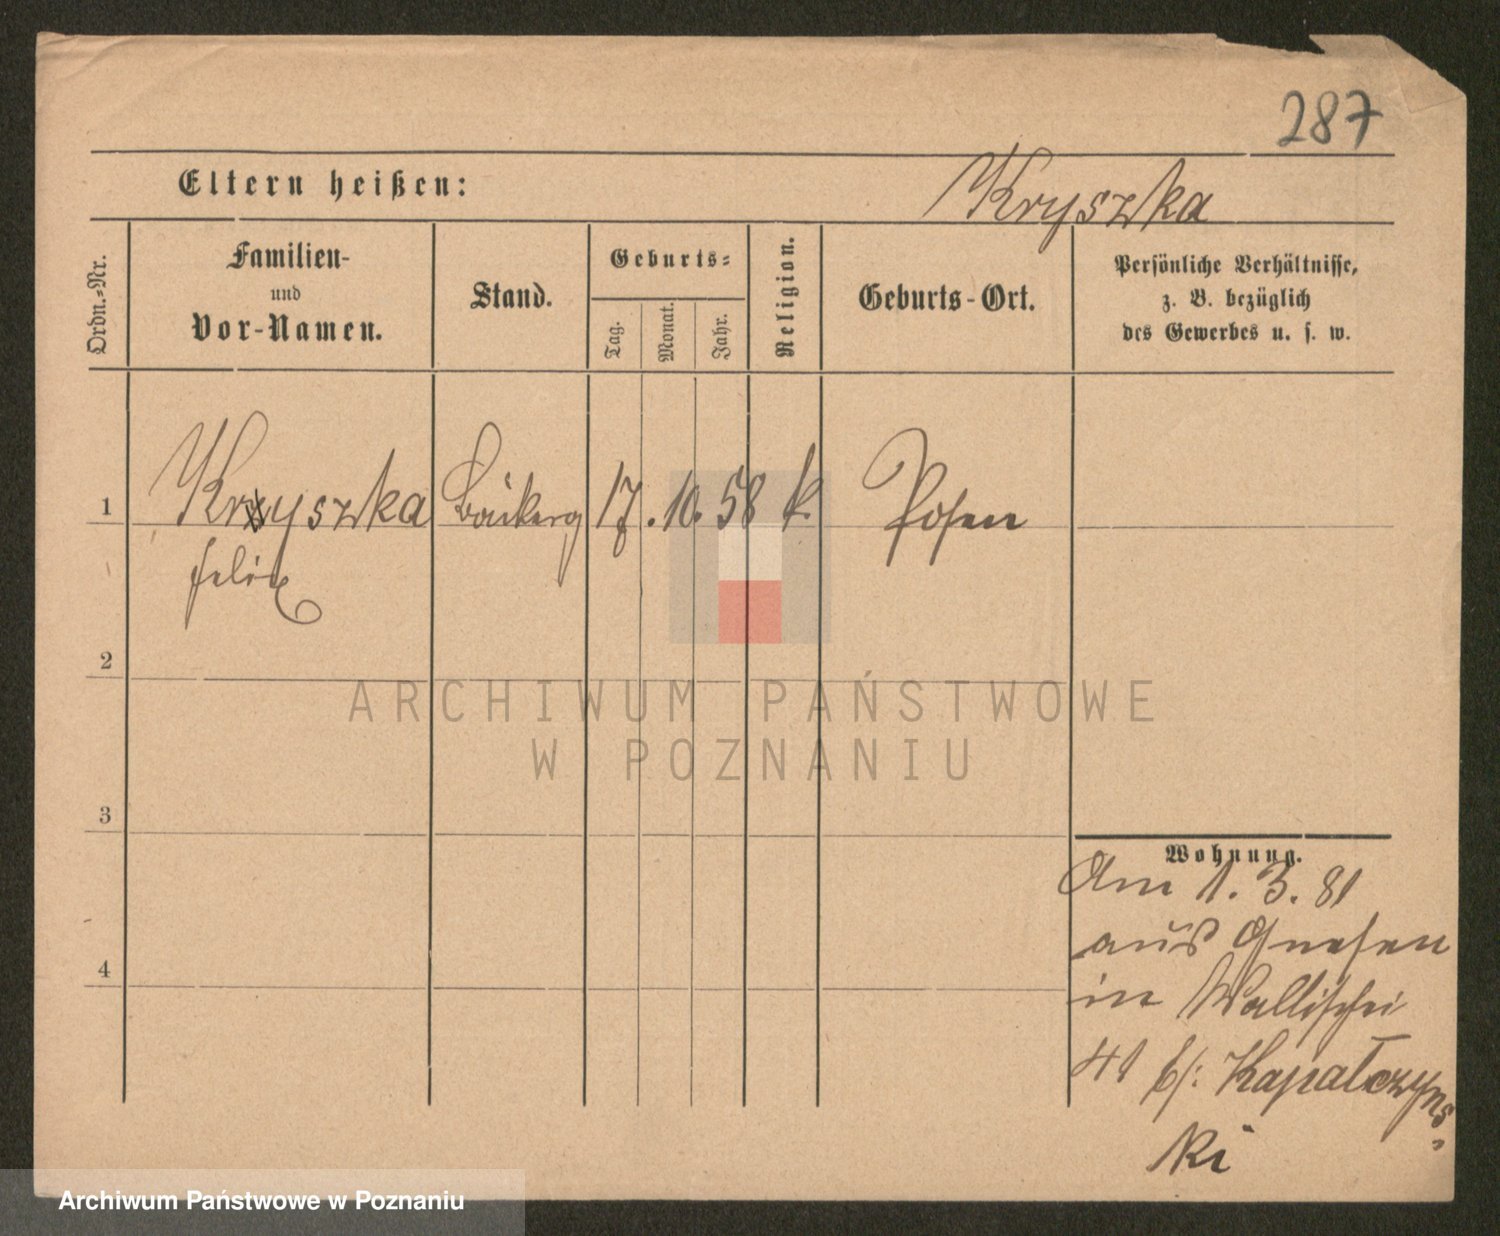 287
Eltern heißen:
Kryszka
Ordn.-Nr.
Familien-
und
Vor-Namen.
Stand.
Geburts-
Tag.
Monat.
Jahr.
Religion.
Geburts-Ort.
Persönliche Verhältnisse,
z. B. bezüglich
des Gewerbes u. s. w.
1
Kryszka
Felix
Bäckerg
17. 10. 58
k.
Posen
2
ARCHIWUM PAŃSTWOWE
W POZNANIU
3
Wohnung.
Am 1. 3. 81
aus Gnesen
in Wallischei
41 b/: Kapałczyns-
ki
4
Archiwum Państwowe w Poznaniu